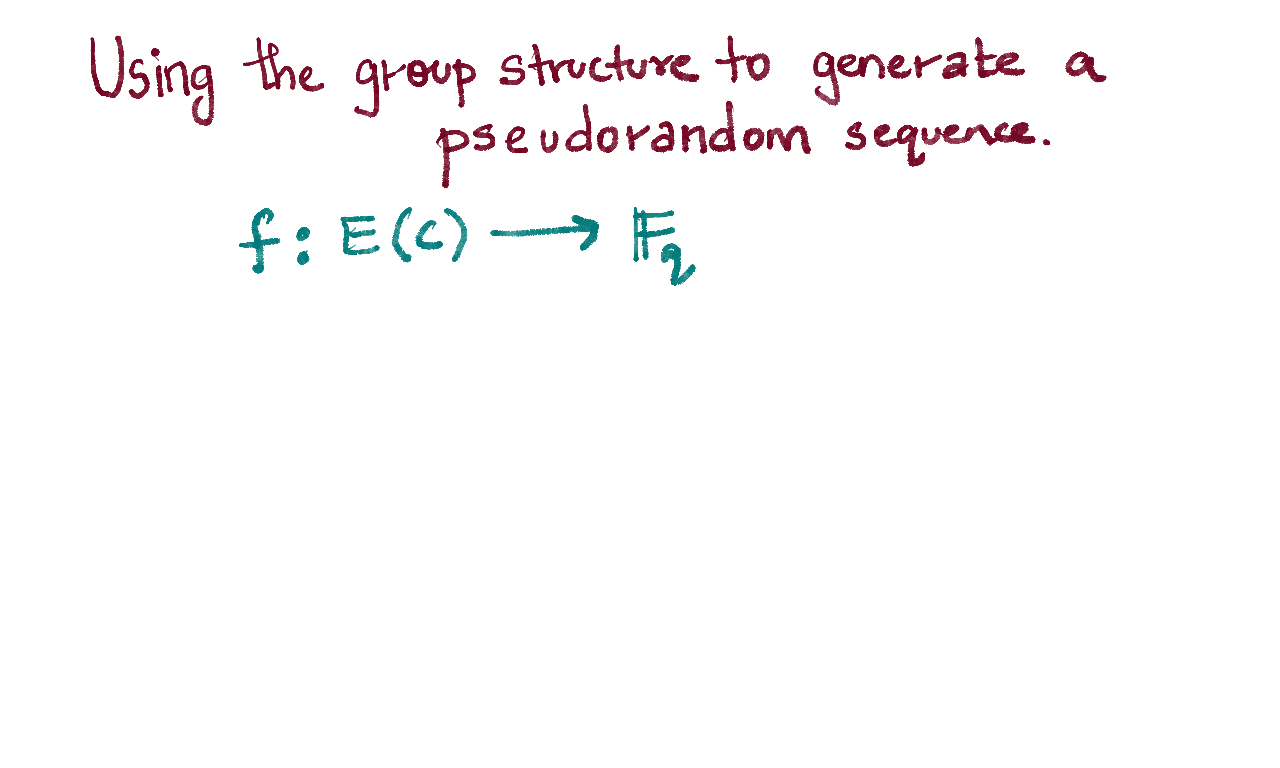 Using the group structure to generate a
pseudorandom sequence.
f : E(C) ⟶ 𝔽q